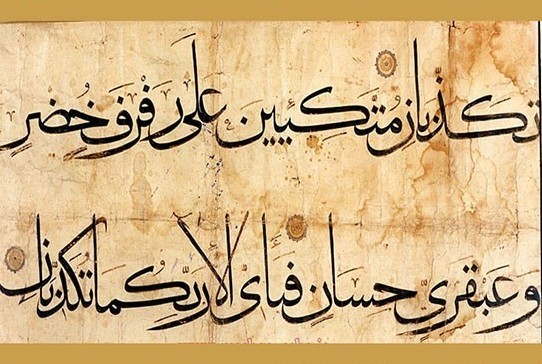 تكذبان متكيين على رفرف خضر
وعبقري حسان فبأي الاء ربكما تكذبان